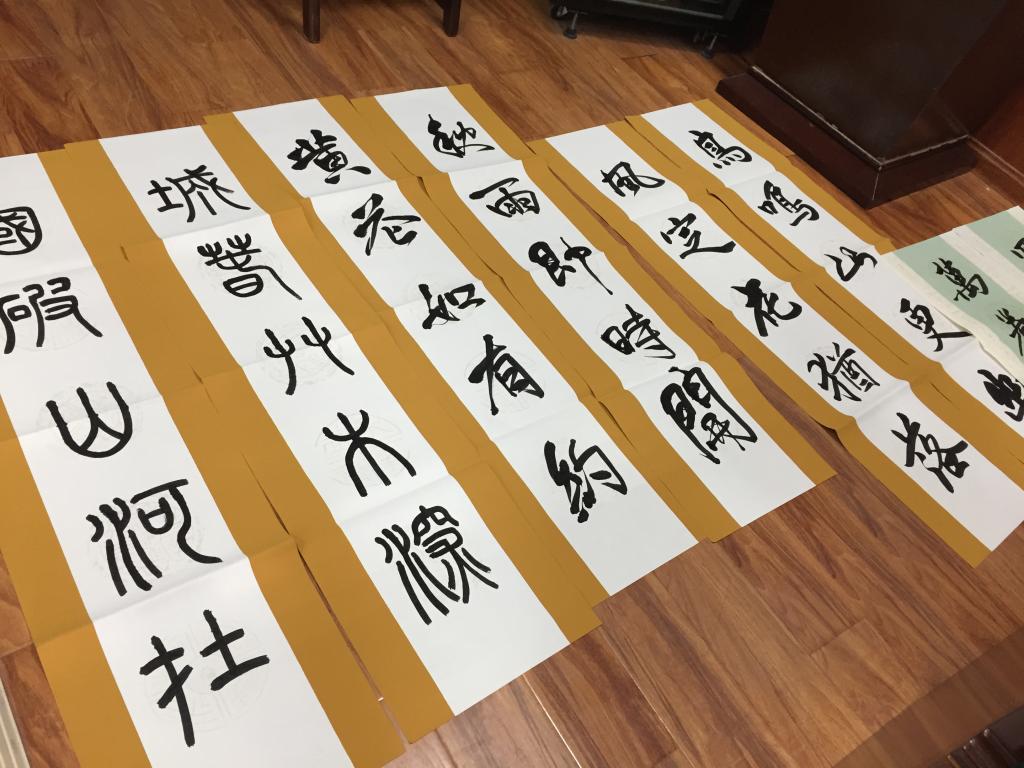 國破山河在
城春艸木深
黃花如有約
秋雨即時開
風定花猶落
鳥鳴山更幽
萬